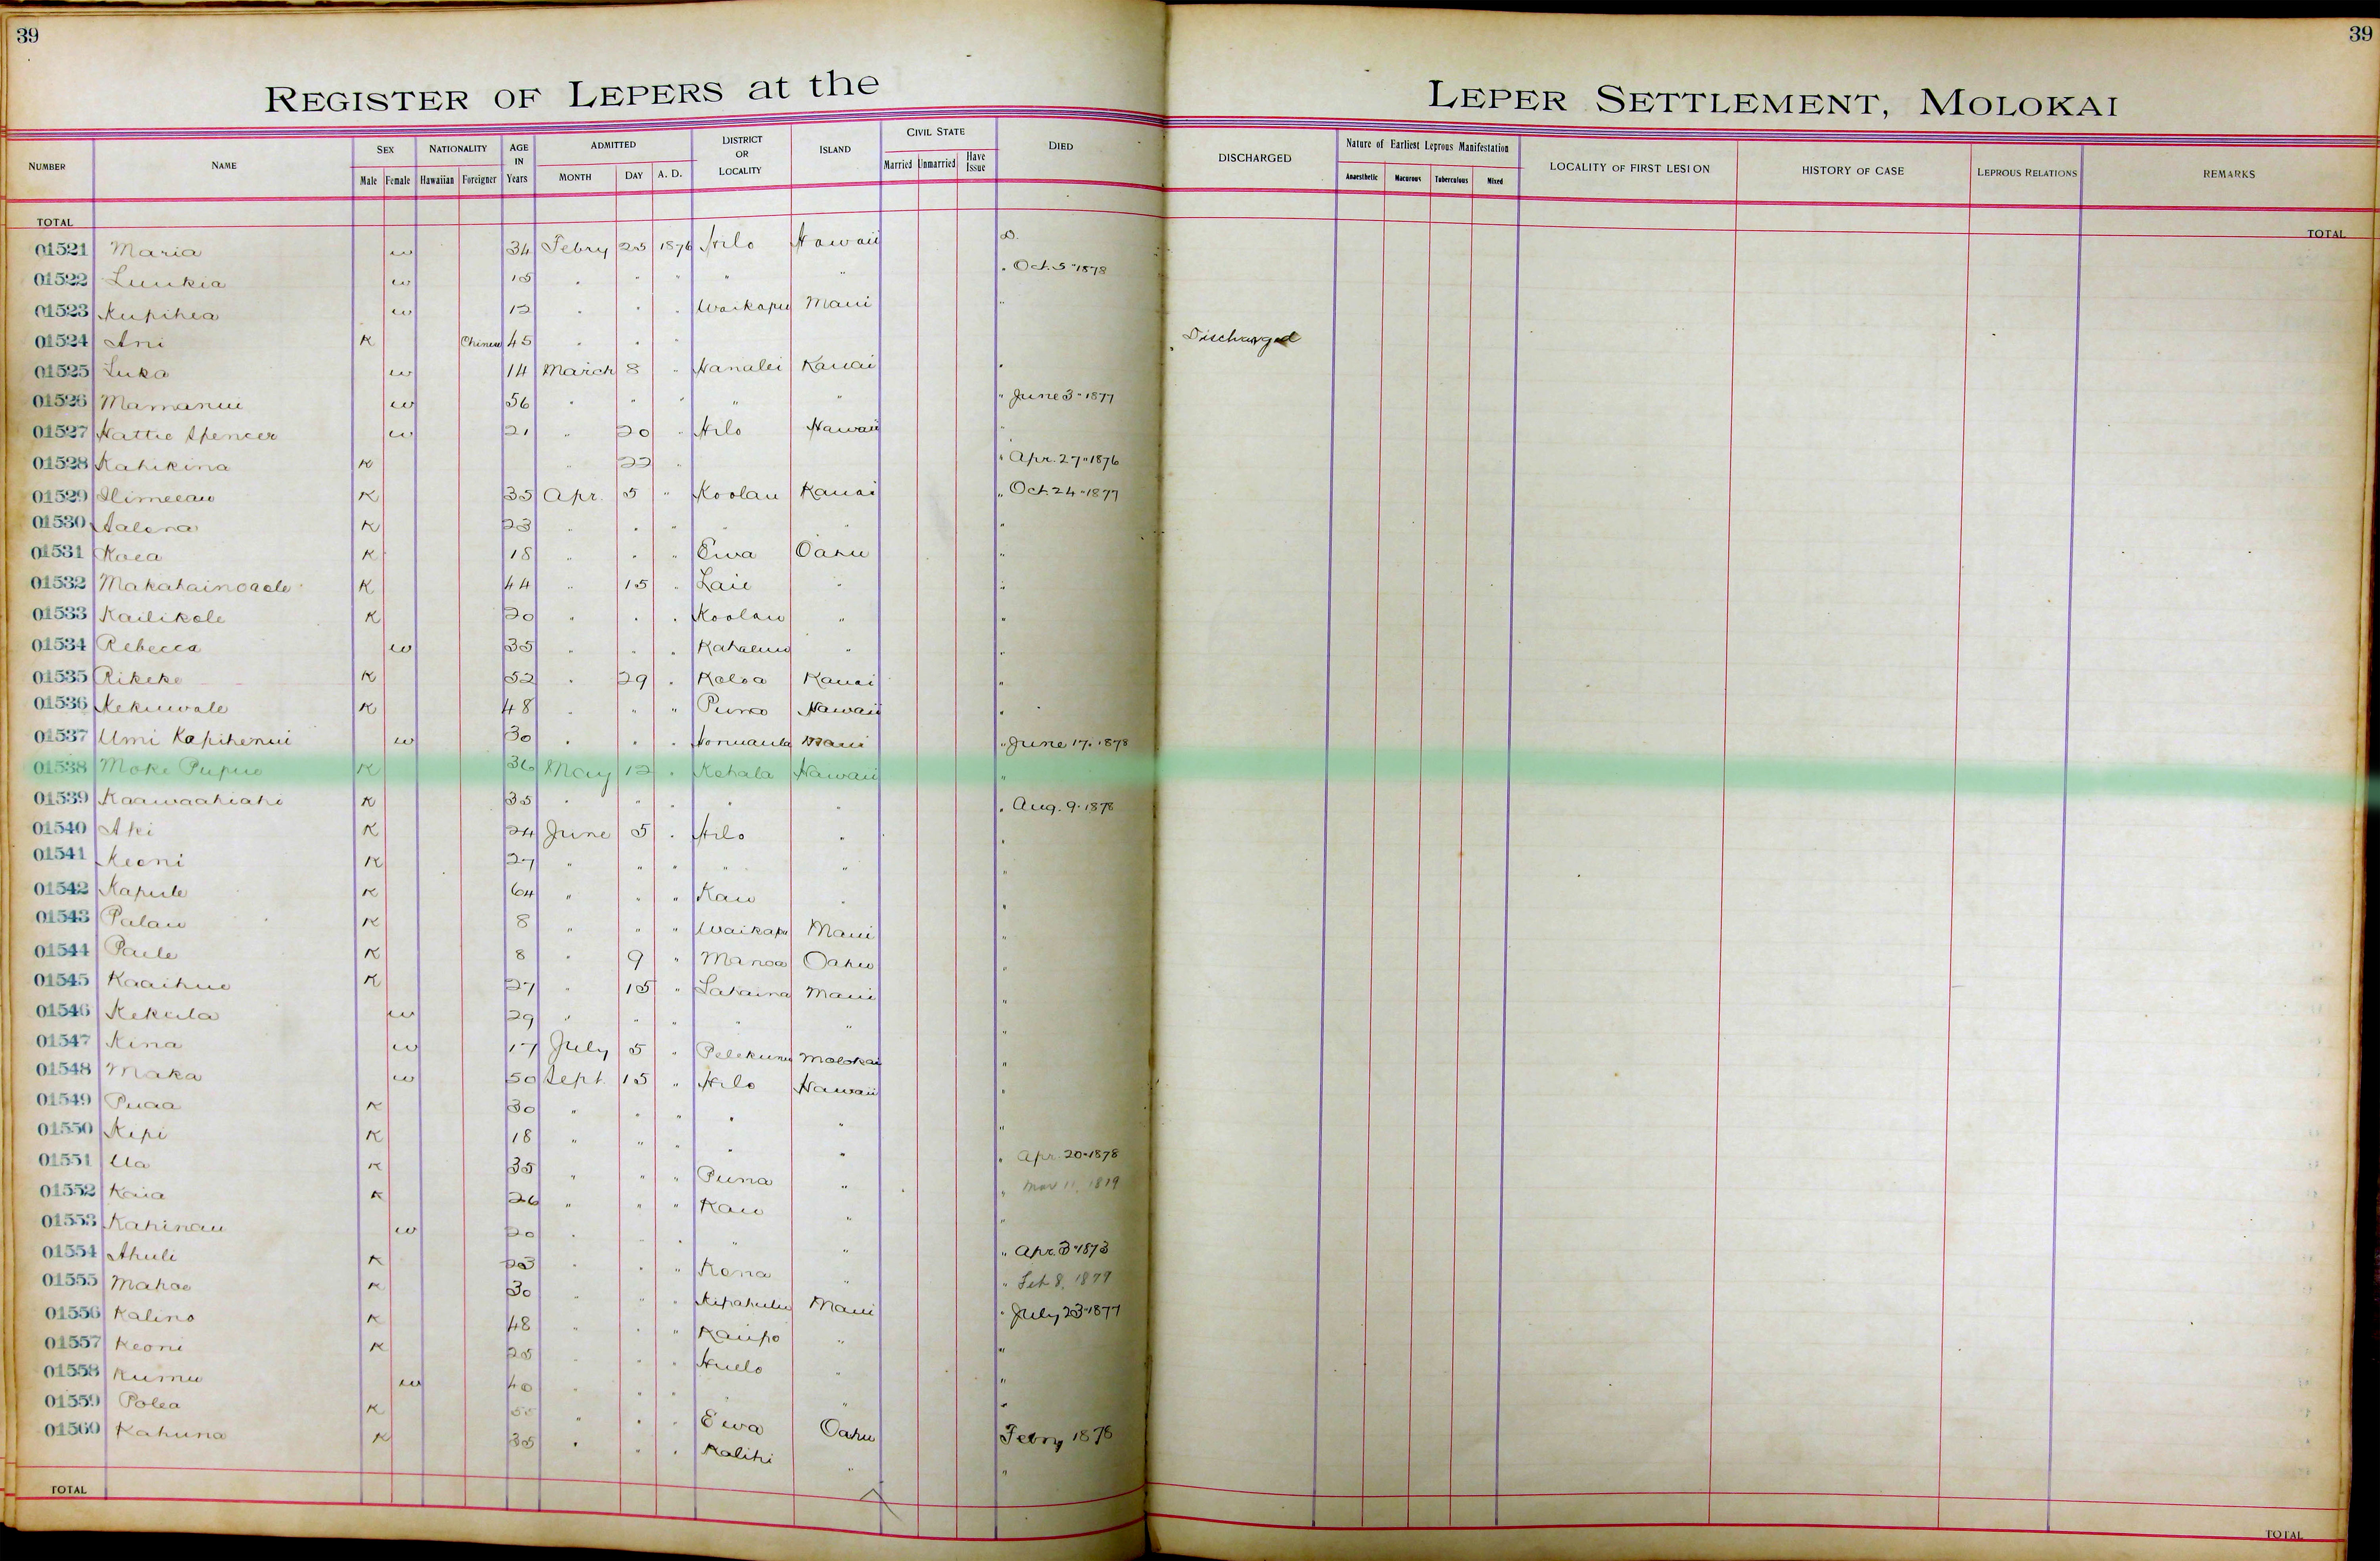 39
39
REGISTER OF LEPERS at the LEPER SETTLEMENT, MOLOKAI
NUMBER NAME SEX NATIONALITY AGE IN Years ADMITTED DISTRICT OR LOCALITY ISLAND CIVIL STATE DIED DISCHARGED Nature of Earliest Leprous Manifestation LOCALITY OF FIRST LESION HISTORY OF CASE LEPROUS RELATIONS REMARKS
Male Female Hawaiian Foreigner MONTH DAY A. D. Married Unmarried Have Issue Anaesthetic Macurous Tuberculous Mixed
TOTAL TOTAL
01521 Maria w 34 Febry 25 1876 Hilo Hawaii D.
01522 Luukia w 15 " " " " " " Oct. 5 " 1878
01523 Kupihea w 12 " " " Waikapu Maui "
01524 Ani K Chinese 45 " " " Discharged
01525 Luka w 14 March 8 " Hanalei Kauai "
01526 Mamanui w 56 " " " " " " June 3 " 1877
01527 Hattie Spencer w 21 " 20 " Hilo Hawaii "
01528 Kahikina K " 22 " " Apr. 27 " 1876
01529 K 35 Apr. 5 " Koolau Kauai " Oct. 24 " 1877
01530 Aalona K 23 " " " " " "
01531 Koea K 18 " " " Ewa Oahu "
01532 Makahainoaole K 44 " 15 " Laie " "
01533 Kailikole K 20 " " " Koolau " "
01534 Rebecca w 35 " " " Kahaluu " "
01535 Rikeke K 52 " 29 " Koloa Kauai "
01536 Kekuwale K 48 " " " Puna Hawaii "
01537 Umi Kapihenui w 30 " " " Honuaula Maui " June 17. 1878
01538 Moke Pupuo K 36 May 12 " Kohala Hawaii "
01539 Kaawaahiahi K 35 " " " " " " Aug. 9. 1878
01540 Aki K 24 June 5 " Hilo " "
01541 Keoni K 27 " " " " " "
01542 Kapule K 64 " " " Kau " "
01543 Palau K 8 " " " Waikapu Maui "
01544 Paule K 8 " 9 " Manoa Oahu "
01545 Kaaihue K 27 " 15 " Lahaina Maui "
01546 Kekula w 29 " " " " " "
01547 Kina w 17 July 5 " Pelekunu Molokai "
01548 Maka w 50 Sept. 15 " Hilo Hawaii "
01549 Puaa K 30 " " " " " "
01550 Kepi K 18 " " " " " "
01551 Ua K 35 " " " Puna " " Apr. 20 " 1878
01552 Kaia K 26 " " " Kau " " Mar 11, 1879
01553 Kahinau w 20 " " " " " "
01554 Ahuli K 23 " " " Kona " " Apr. 3 " 1873
01555 Mahoe K 30 " " " Kipahulu Maui " Feb 8, 1879
01556 Kalino K 48 " " " Kaupo " " July 23 " 1877
01557 Keoni K 25 " " " Huelo " "
01558 Kumu w 40 " " " " "
01559 Polea K 55 " " " Ewa Oahu "
01560 Kahuna K 35 " " " Kalihi " Febry 1878
"
TOTAL TOTAL